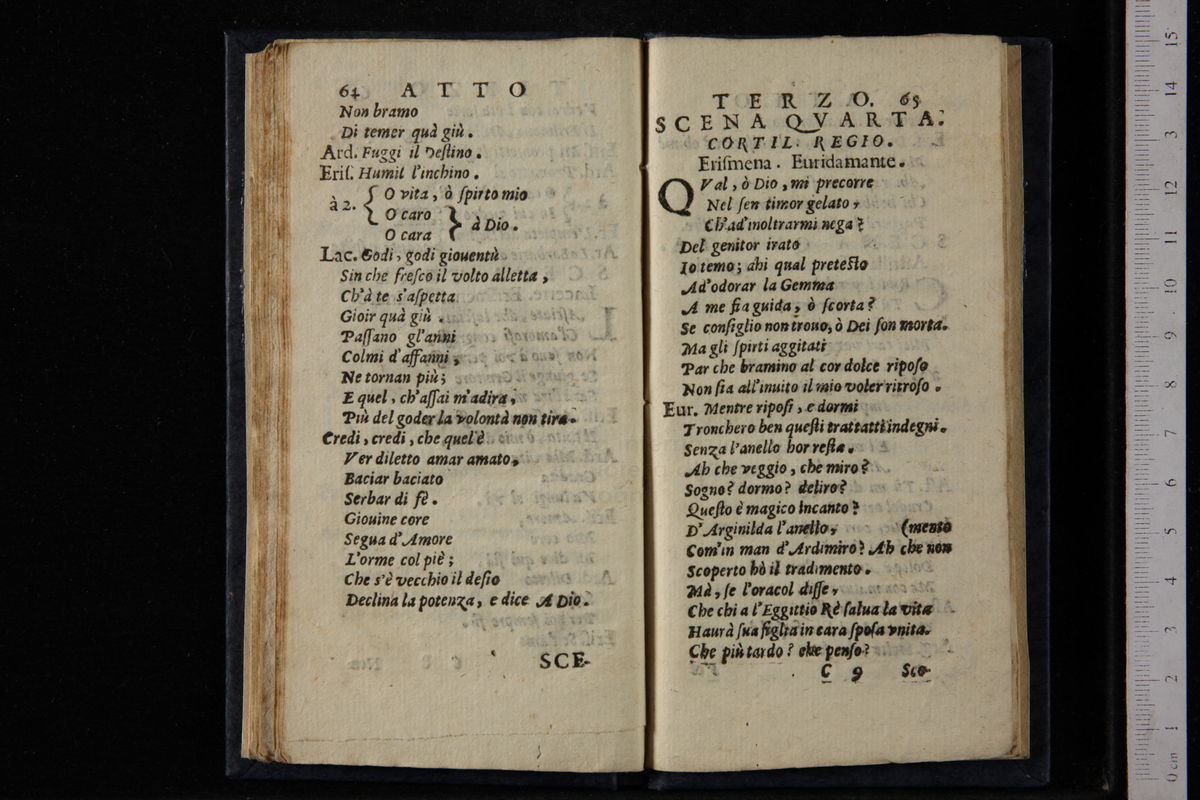 64 ATTO
Non bramo
Di temer quà giù.
Ard. Fuggi il Deſtino.
Eriſ. Humil l'inchino.
à 2. { O vita, ò ſpirto mio
O caro } à Dio.
O cara
Lac. Godi, godi giouentù
Sin che freſco il volto alletta,
Ch'à te s'aſpetta
Gioir quà giù.
Paſſano gl'anni
Colmi d'affanni,
Ne tornan più;
E quel, ch'aſſai m'adira,
Più del goder la volontà non tira.
Credi, credi, che quel'è
Ver diletto amar amato,
Baciar baciato
Serbar di fè.
Giouine core
Segua d'Amore
L'orme col piè;
Che s'è vecchio il deſio
Declina la potenza, e dice A Dio.
SCE-
TERZO. 65
SCENA QVARTA.
CORTIL REGIO.
Eriſmena. Euridamante.
QVal, ò Dio, mi precorre
Nel ſen timor gelato,
Ch'ad'inoltrarmi nega?
Del genitor irato
Io temo; ahi qual preteſto
Ad'odorar la Gemma
A me ſia guida, ò ſcorta?
Se conſiglio non trouo, ò Dei ſon morta.
Ma gli ſpirti aggitati
Par che bramino al cor dolce ripoſo
Non ſia all'inuito il mio voler ritroſo.
Eur. Mentre ripoſi, e dormi
Troncherò ben queſti trattatti indegni.
Senza l'anello hor reſta.
Ah che veggio, che miro?
Sogno? dormo? deliro?
Queſto è magico Incanto?
D'Arginilda l'anello, (mento
Com'in man d'Ardimiro? Ah che non
Scoperto hò il tradimento.
Mà, ſe l'oracol diſſe,
Che chi a l'Eggittio Rè ſalua la vita
Haurà ſua figlia in cara ſpoſa vnita.
Che più tardo? che penſo?
C 9 Sco-
0 cm 1 2 3 4 5 6 7 8 9 10 11 12 13 14 15